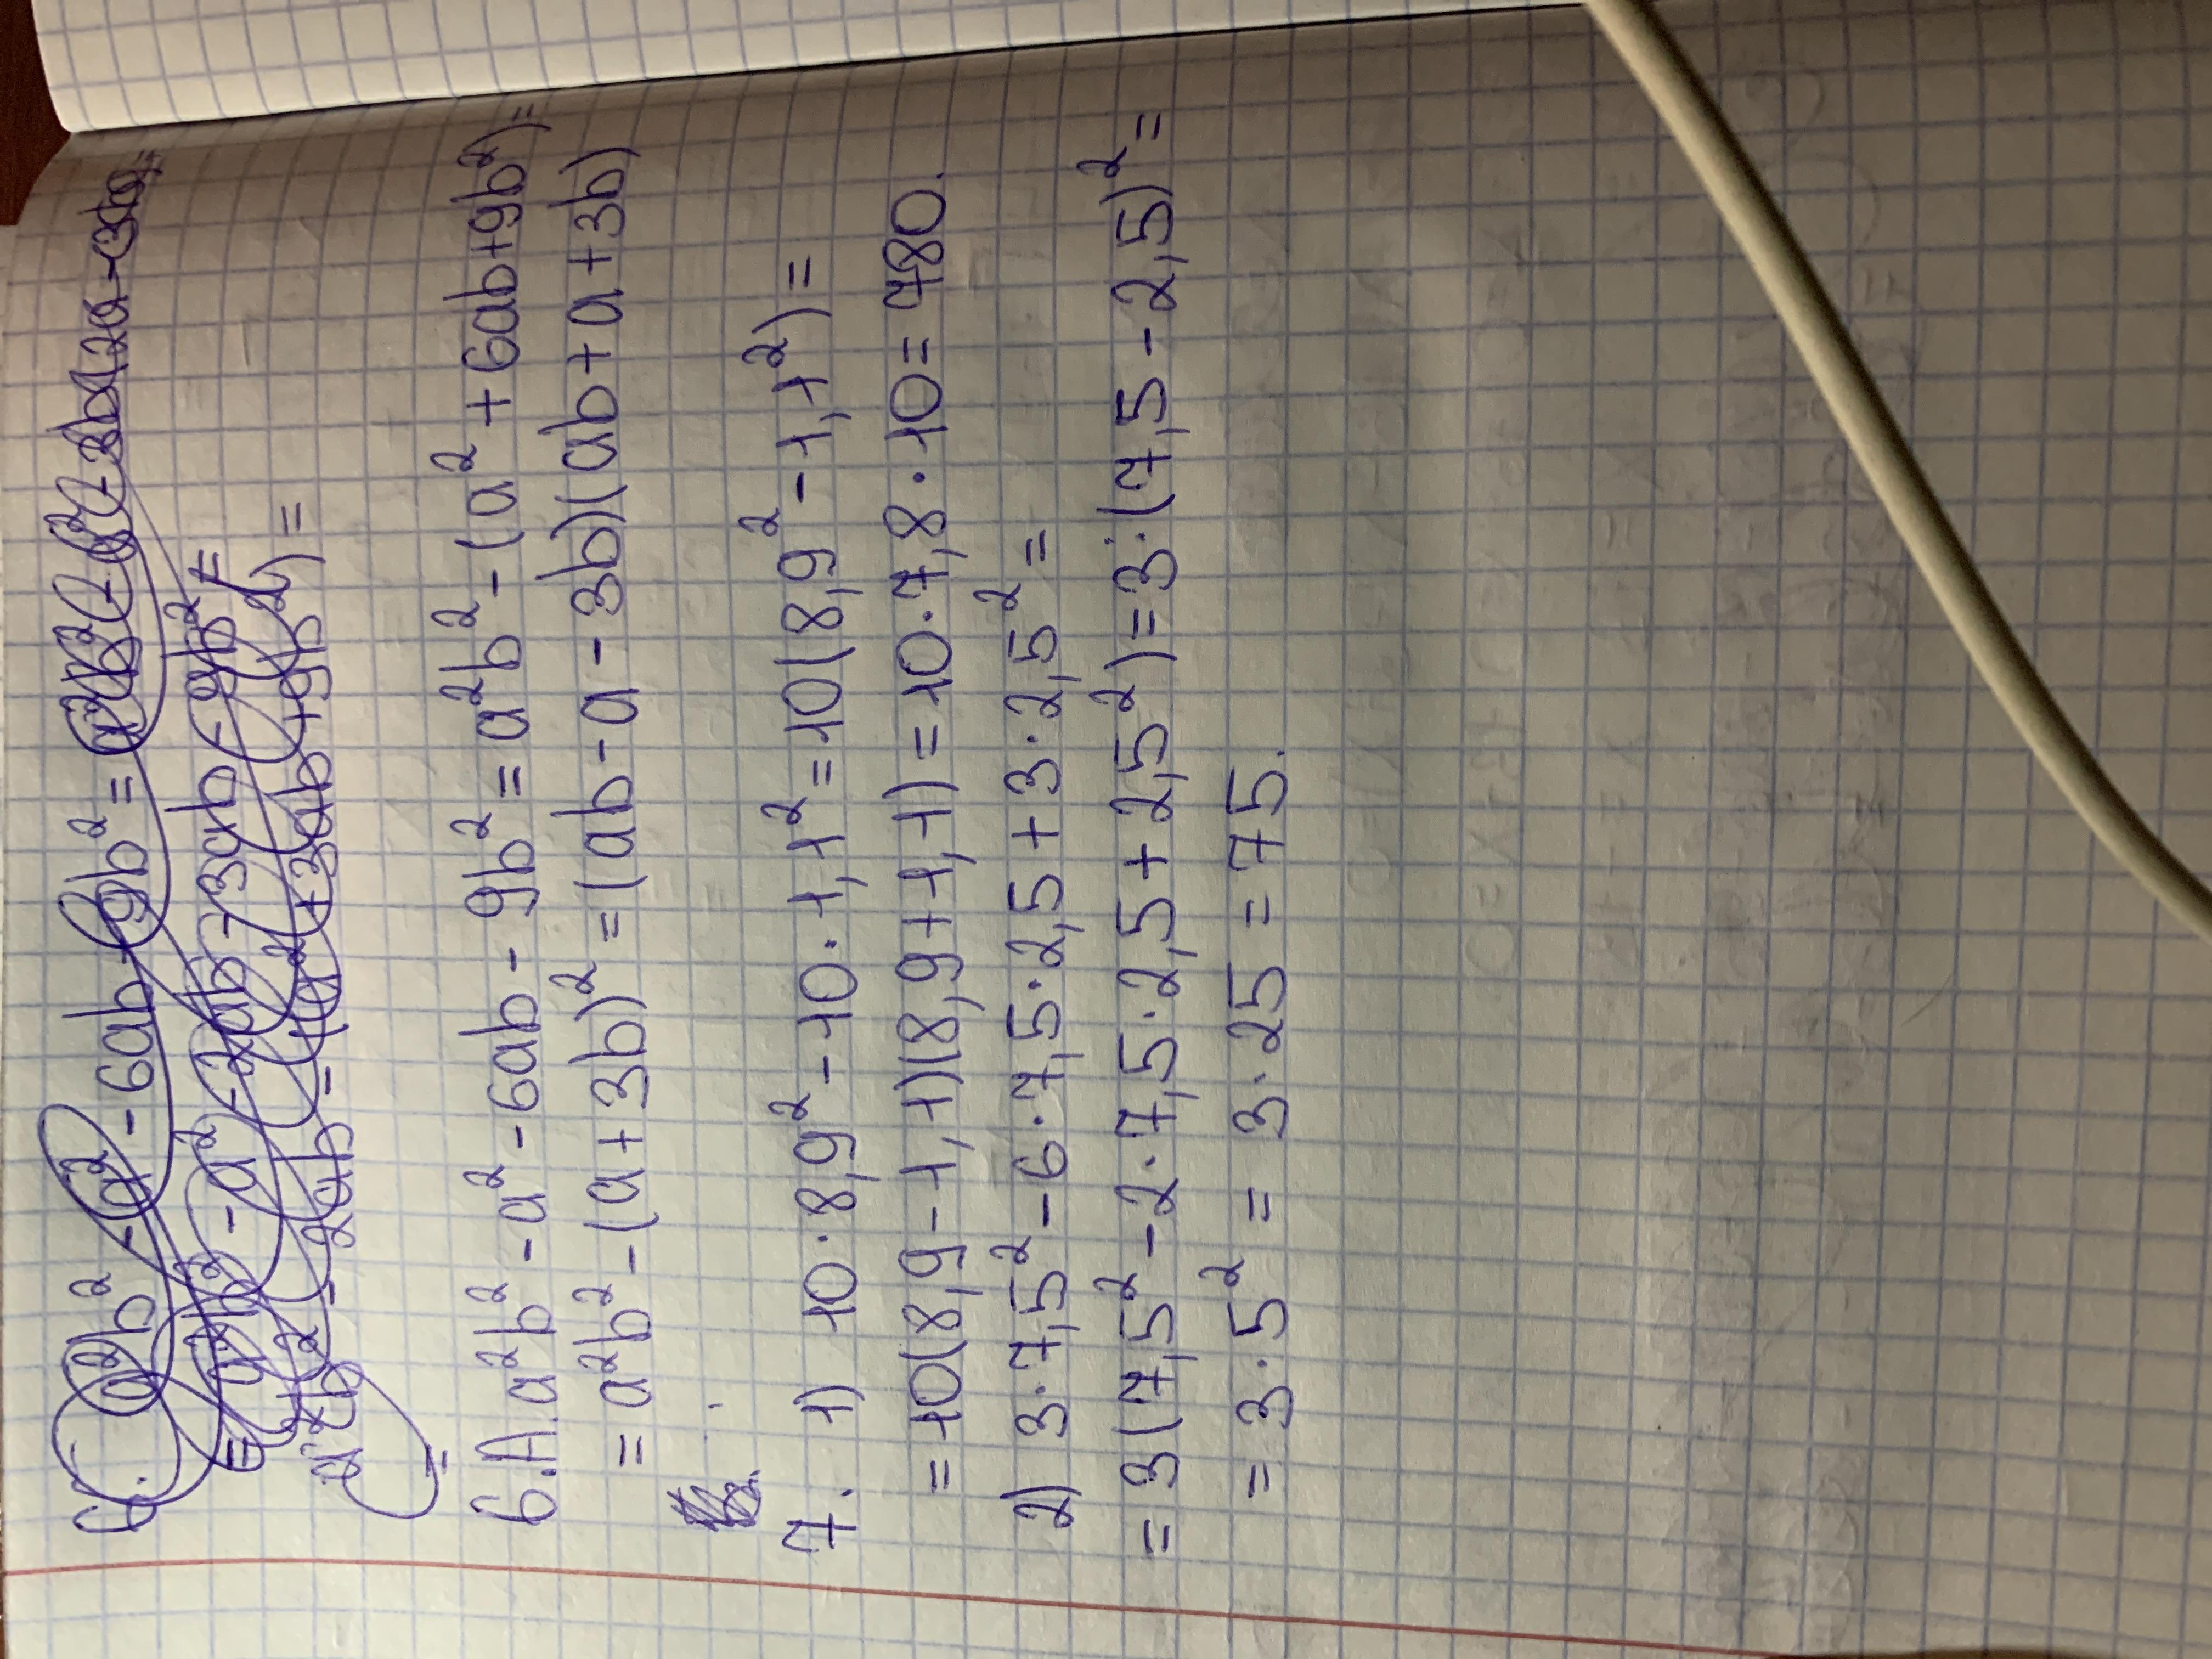 6. a²b² - a² - 6ab - 9b² =
6.A. a²b² - a² - 6ab - 9b² = a²b² - (a² + 6ab + 9b²) =
= a²b² - (a + 3b)² = (ab - a - 3b)(ab + a + 3b)
7. 1) 10 · 8,9² - 10 · 1,1² = 10(8,9² - 1,1²) =
= 10(8,9 - 1,1)(8,9 + 1,1) = 10 · 7,8 · 10 = 780.
2) 3 · 7,5² - 6 · 7,5 · 2,5 + 3 · 2,5² =
= 3(7,5² - 2 · 7,5 · 2,5 + 2,5²) = 3 · (7,5 - 2,5)² =
= 3 · 5² = 3 · 25 = 75.